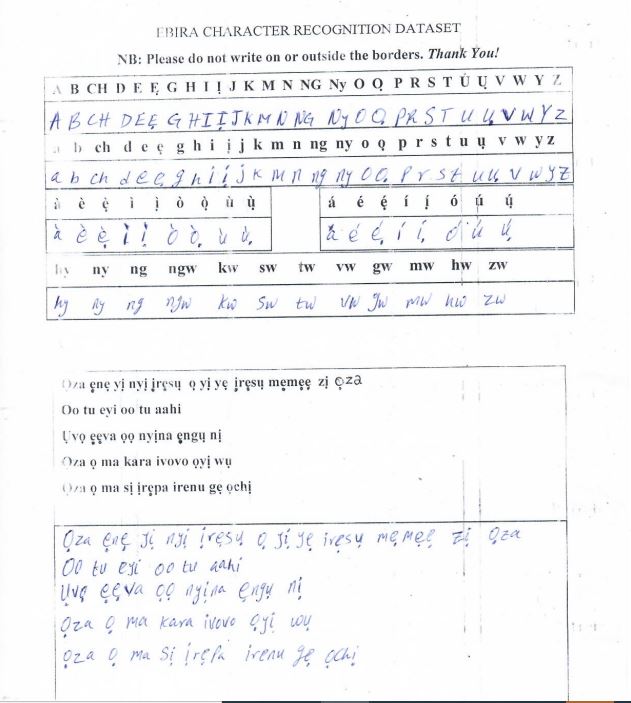 EBIRA CHARACTER RECOGNITION DATASET
NB: Please do not write on or outside the borders. Thank You!
A B CH D E Ẹ G H I Ị J K M N NG Ny O Ọ P R S T U Ụ V W Y Z
A B CH D E Ẹ G H I Ị J K M N NG Ny O Ọ P R S T U Ụ V W Y Z
a b ch d e ẹ g h i ị j k m n ng ny o ọ p r s t u ụ v w y z
a b ch d e ẹ g h i ị j k m n ng ny o ọ p r s t u ụ v w y z
à è ẹ̀ ì ị̀ ò ọ̀ ù ụ̀ á é ẹ́ í ị́ ó ú ụ́
à è ẹ̀ ì ị̀ ò ọ̀ ù ụ̀ á é ẹ́ í ị́ ú ụ́
hy ny ng ngw kw sw tw vw gw mw hw zw
hy ny ng ngw kw sw tw vw gw mw hw zw
Ọza ẹnẹ yị nyị ịrẹsụ ọ yị yẹ ịrẹsụ mẹmẹẹ zị ọza
Oo tu eyi oo tu aahi
Ụvọ ẹẹva ọọ nyịna ẹngụ nị
Ọza ọ ma kara ivovo ọyị wụ
Ọza ọ ma sị ịrẹpa irenu gẹ ọchị
Ọza ẹnẹ yị nyị ịrẹsụ ọ yị yẹ irẹsụ mẹmẹẹ zị ọza
Oo tu eyi oo tu aahi
Ụvọ ẹẹva ọọ nyịna ẹngụ nị
Ọza ọ ma kara ivovo ọyị wụ
Ọza ọ ma sị ịrẹpa irenu gẹ ọchị